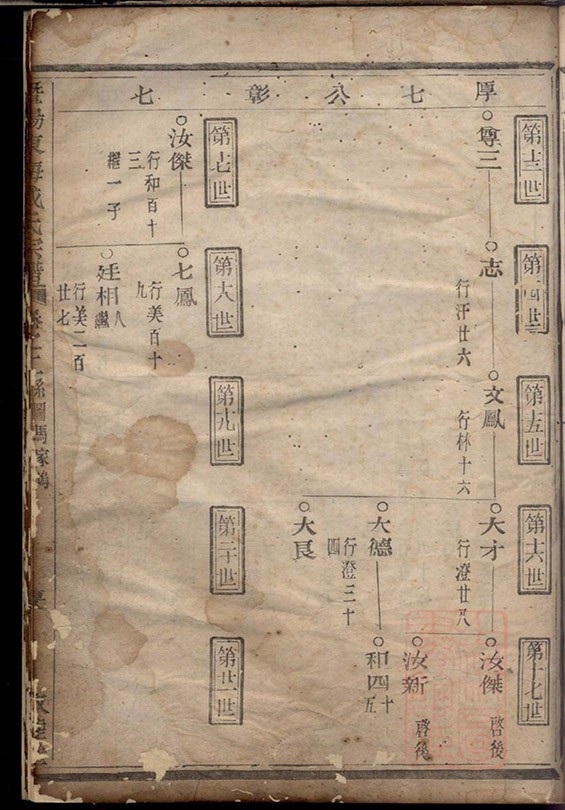 厚七公彰七
第十三世
尊三
第十四世
志
行汗廿六
第十五世
文鳳
行林十六
第十六世
大才
行澄廿八
大德
行澄三十
四
大良
第十七世
汝傑
啓後
汝新
啓後
和四十
五
第十七世
汝傑
行和百十
三
繼一子
第十八世
七鳳
行美百十
九
廷相
八
繼
行美二百
廿七
第十九世
第二十世
第廿一世
東海
氏宗譜
系圖馬家